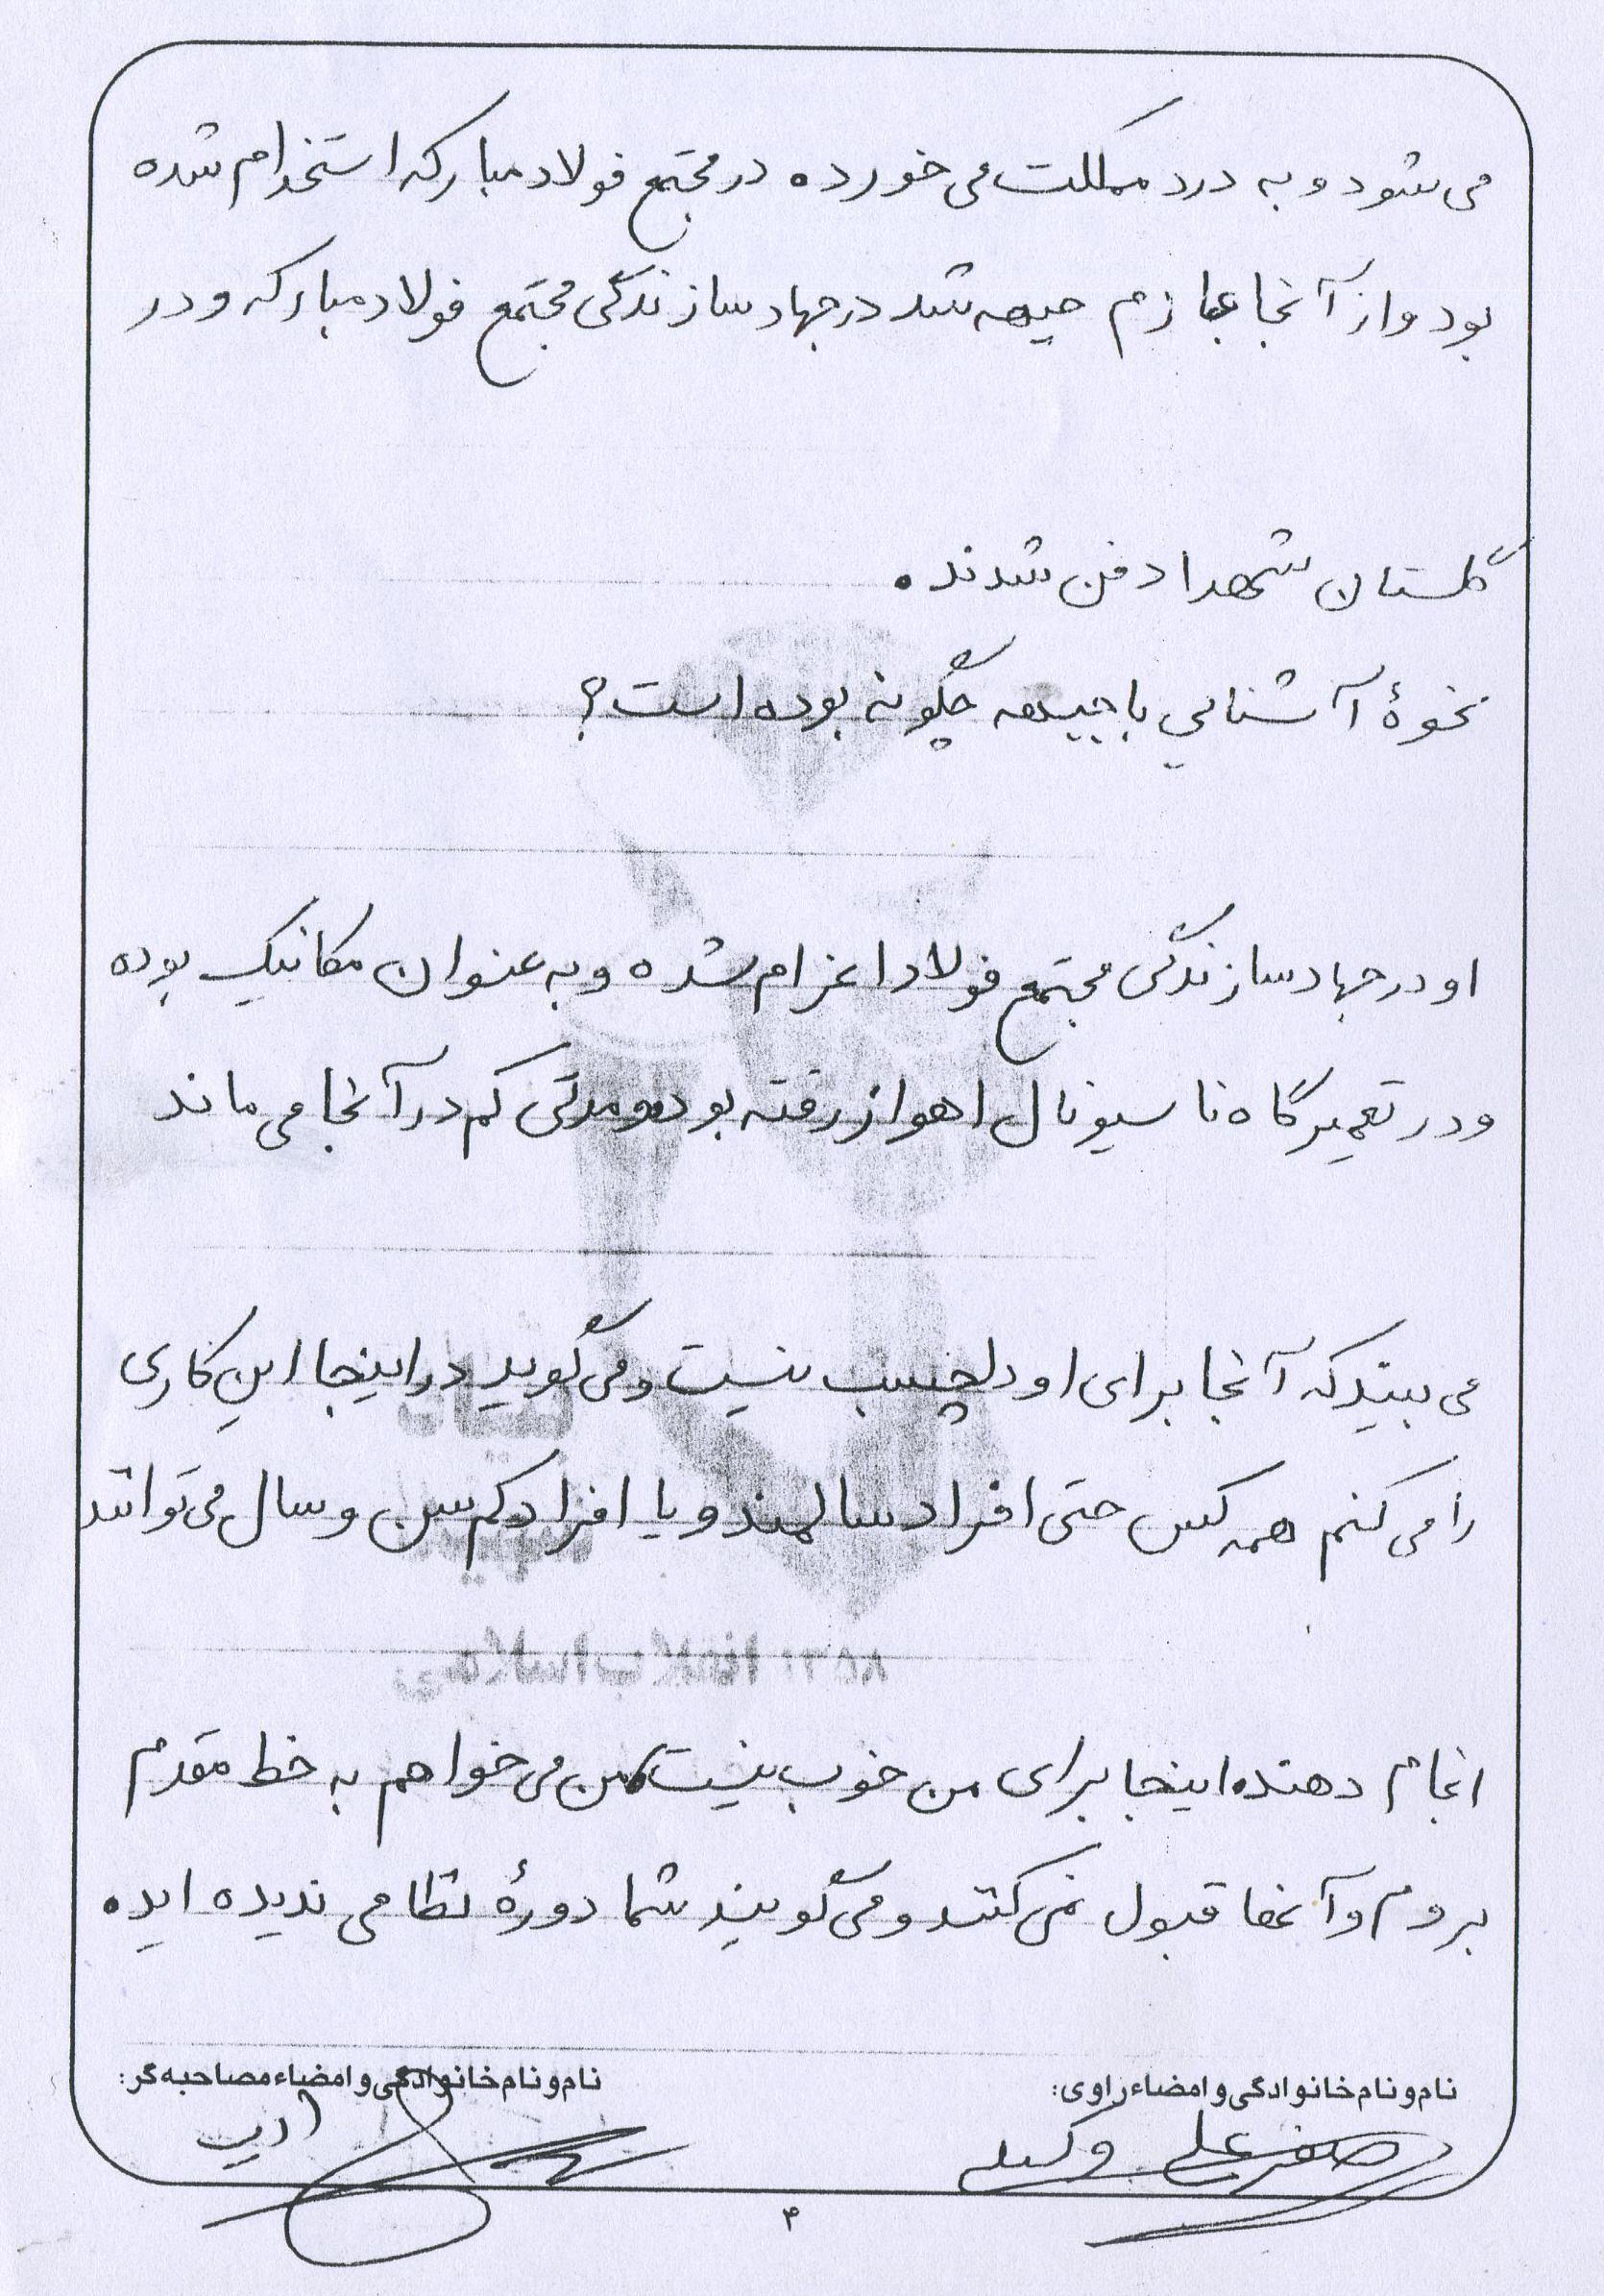 می شود و به درد مملکت می خورد ه در مجتمع فولاد مبارکه استخدام شده
بود واز آنجا عازم جبهه شد در جهاد سازندگی مجتمع فولاد مبارکه و در
گلستان شهدا دفن شدند ه
نحوۀ آشنایی با جبهه چگونه بوده است؟
او در جهاد سازندگی مجتمع فولاد اعزام شده و به عنوان مکانیک بوده
و در تعمیرگاه ناسیونال اهواز رفته بود و مدتی کم در آنجا می ماند
می بیند که آنجا برای او دلچسب نیست و می گوید در اینجا این کاری
را می کنم همه کس حتی افراد سالمند و یا افراد کم سن و سال می توانند
انجام دهند اینجا برای من خوب نیست من می خواهم به خط مقدم
بروم و آنها قبول نمی کنند و می گویند شما دورۀ نظامی ندیده اید ه
نام و نام خانوادگی و امضاء راوی:
نام و نام خانوادگی و امضاء مصاحبه گر:
صفرعلی وکیلی
ادیب
۴
۱۳۵۸ انقلاب اسلامی